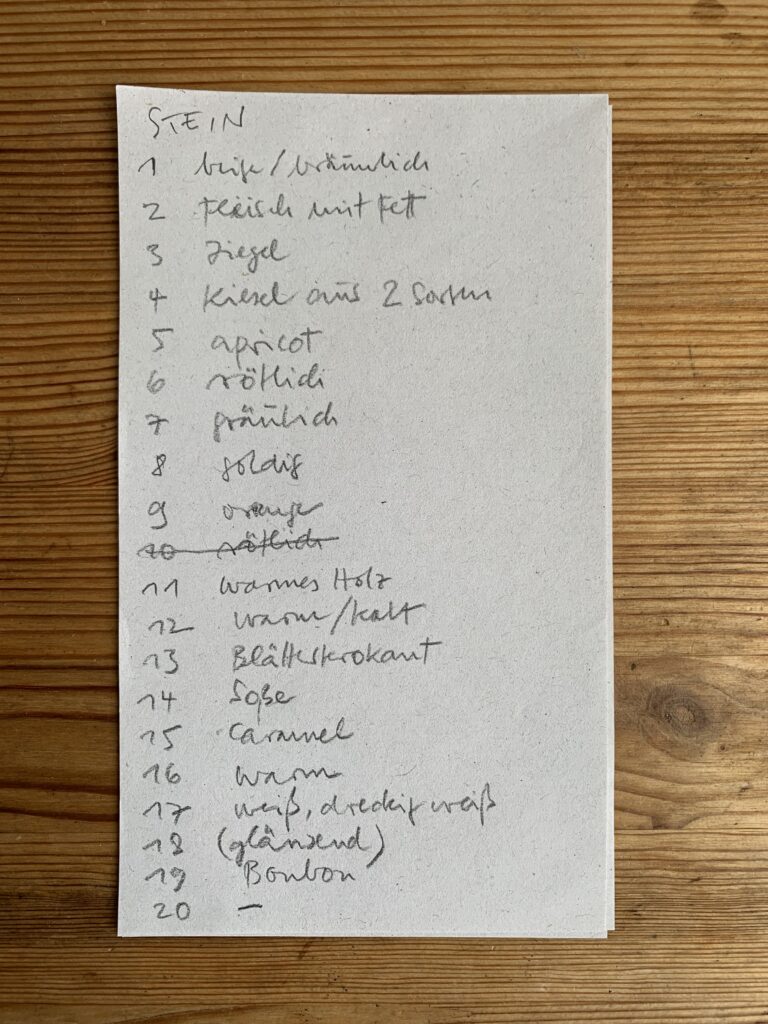 STEIN
1 beige/bräunlich
2 Fleisch mit Fett
3 Ziegel
4 Kiesel aus 2 Sorten
5 apricot
6 rötlich
7 gräulich
8 goldig
9 orange
10 rötlich
11 warmes Holz
12 warm/kalt
13 Blätterkrokant
14 Soße
15 Caramel
16 warm
17 weiß, dreckig weiß
18 (glänzend)
19 Bonbon
20 –